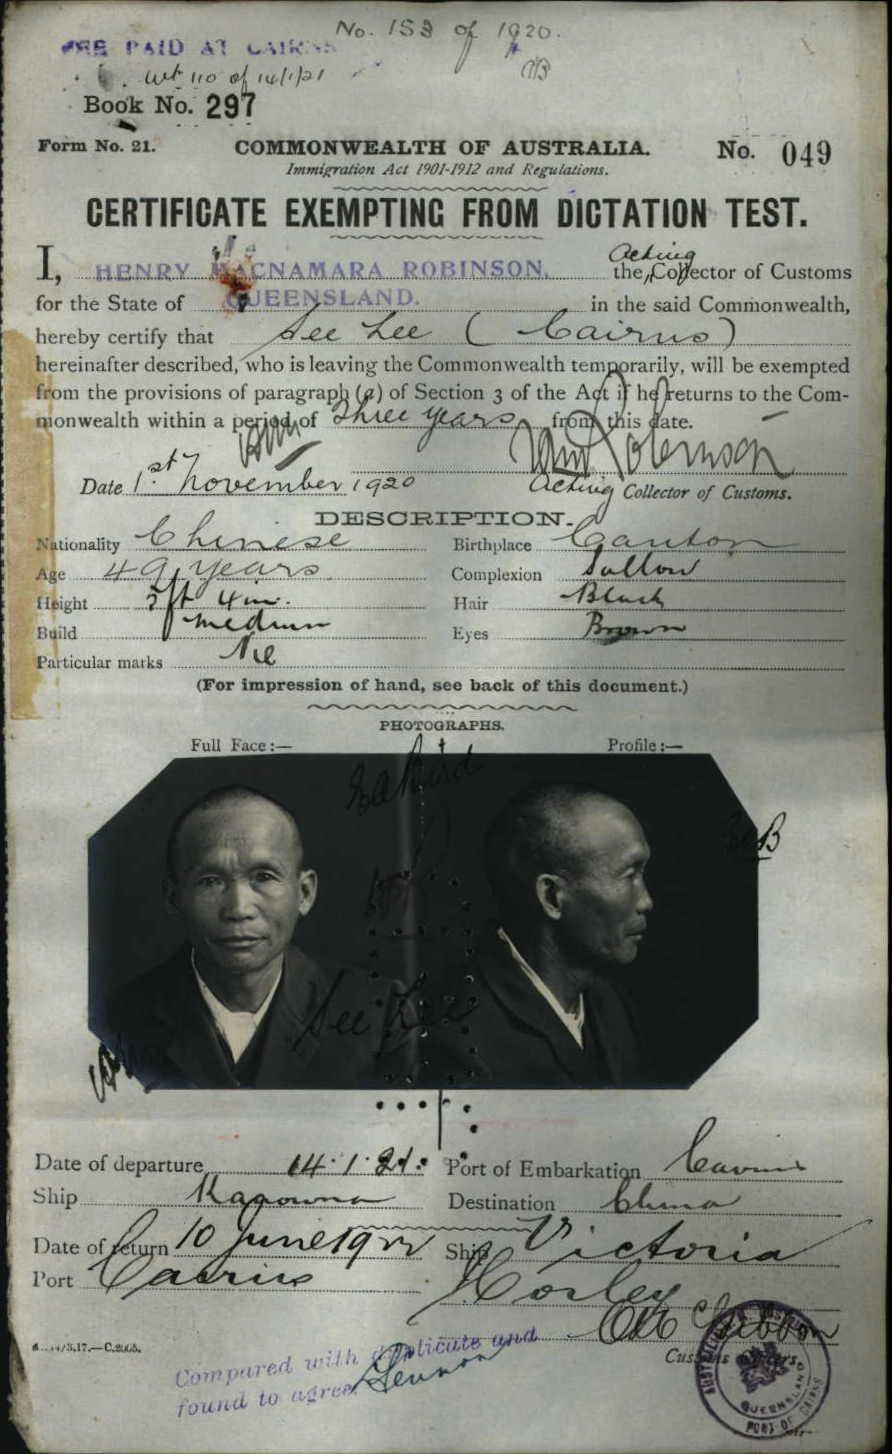 No. 153 of 1920.
FEE PAID AT CAIRNS
110 of 14/1/21
Book No. 297
Form No. 21. COMMONWEALTH OF AUSTRALIA. No. 049
Immigration Act 1901-1912 and Regulations.
CERTIFICATE EXEMPTING FROM DICTATION TEST.
I, HENRY MACNAMARA ROBINSON, the Acting Collector of Customs
for the State of QUEENSLAND. in the said Commonwealth,
hereby certify that See Lee (Cairns)
hereinafter described, who is leaving the Commonwealth temporarily, will be exempted
from the provisions of paragraph (a) of Section 3 of the Act if he returns to the Com-
monwealth within a period of Three years from this date.
Robinson
Date 1st November 1920 Acting Collector of Customs.
DESCRIPTION.
Nationality Chinese Birthplace Canton
Age 49 years Complexion Sallow
Height 5ft 4in. Hair Black
Build medium Eyes Brown
Particular marks Nil
(For impression of hand, see back of this document.)
PHOTOGRAPHS.
Full Face :— Profile :—
See Lee
Date of departure 14.1.21. Port of Embarkation Cairns
Ship Kanowna Destination China
Date of return 10 June 1922 Ship Victoria
Port Cairns
Customs Officers.
Compared with duplicate and
found to agree. Lennon
AUSTRALIA CUSTOMS
QUEENSLAND
PORT OF CAIRNS